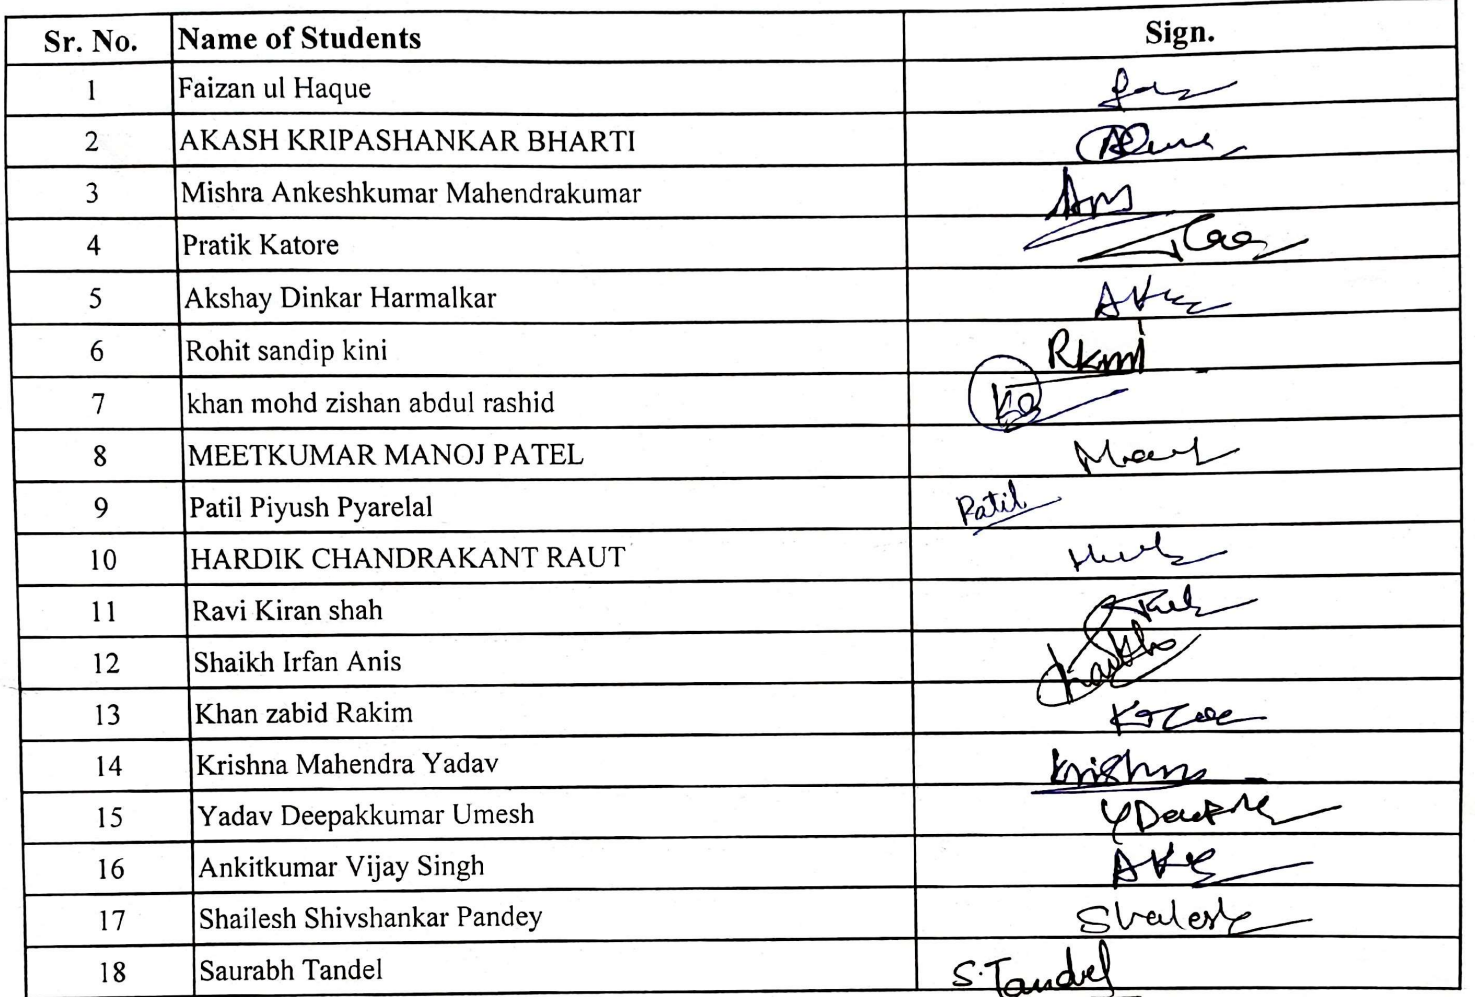 Sr. No. Name of Students Sign.
1 Faizan ul Haque
2 AKASH KRIPASHANKAR BHARTI
3 Mishra Ankeshkumar Mahendrakumar
4 Pratik Katore
5 Akshay Dinkar Harmalkar
6 Rohit sandip kini
7 khan mohd zishan abdul rashid
8 MEETKUMAR MANOJ PATEL
9 Patil Piyush Pyarelal Patil
10 HARDIK CHANDRAKANT RAUT
11 Ravi Kiran shah
12 Shaikh Irfan Anis
13 Khan zabid Rakim
14 Krishna Mahendra Yadav
15 Yadav Deepakkumar Umesh
16 Ankitkumar Vijay Singh
17 Shailesh Shivshankar Pandey
18 Saurabh Tandel S.Tandel